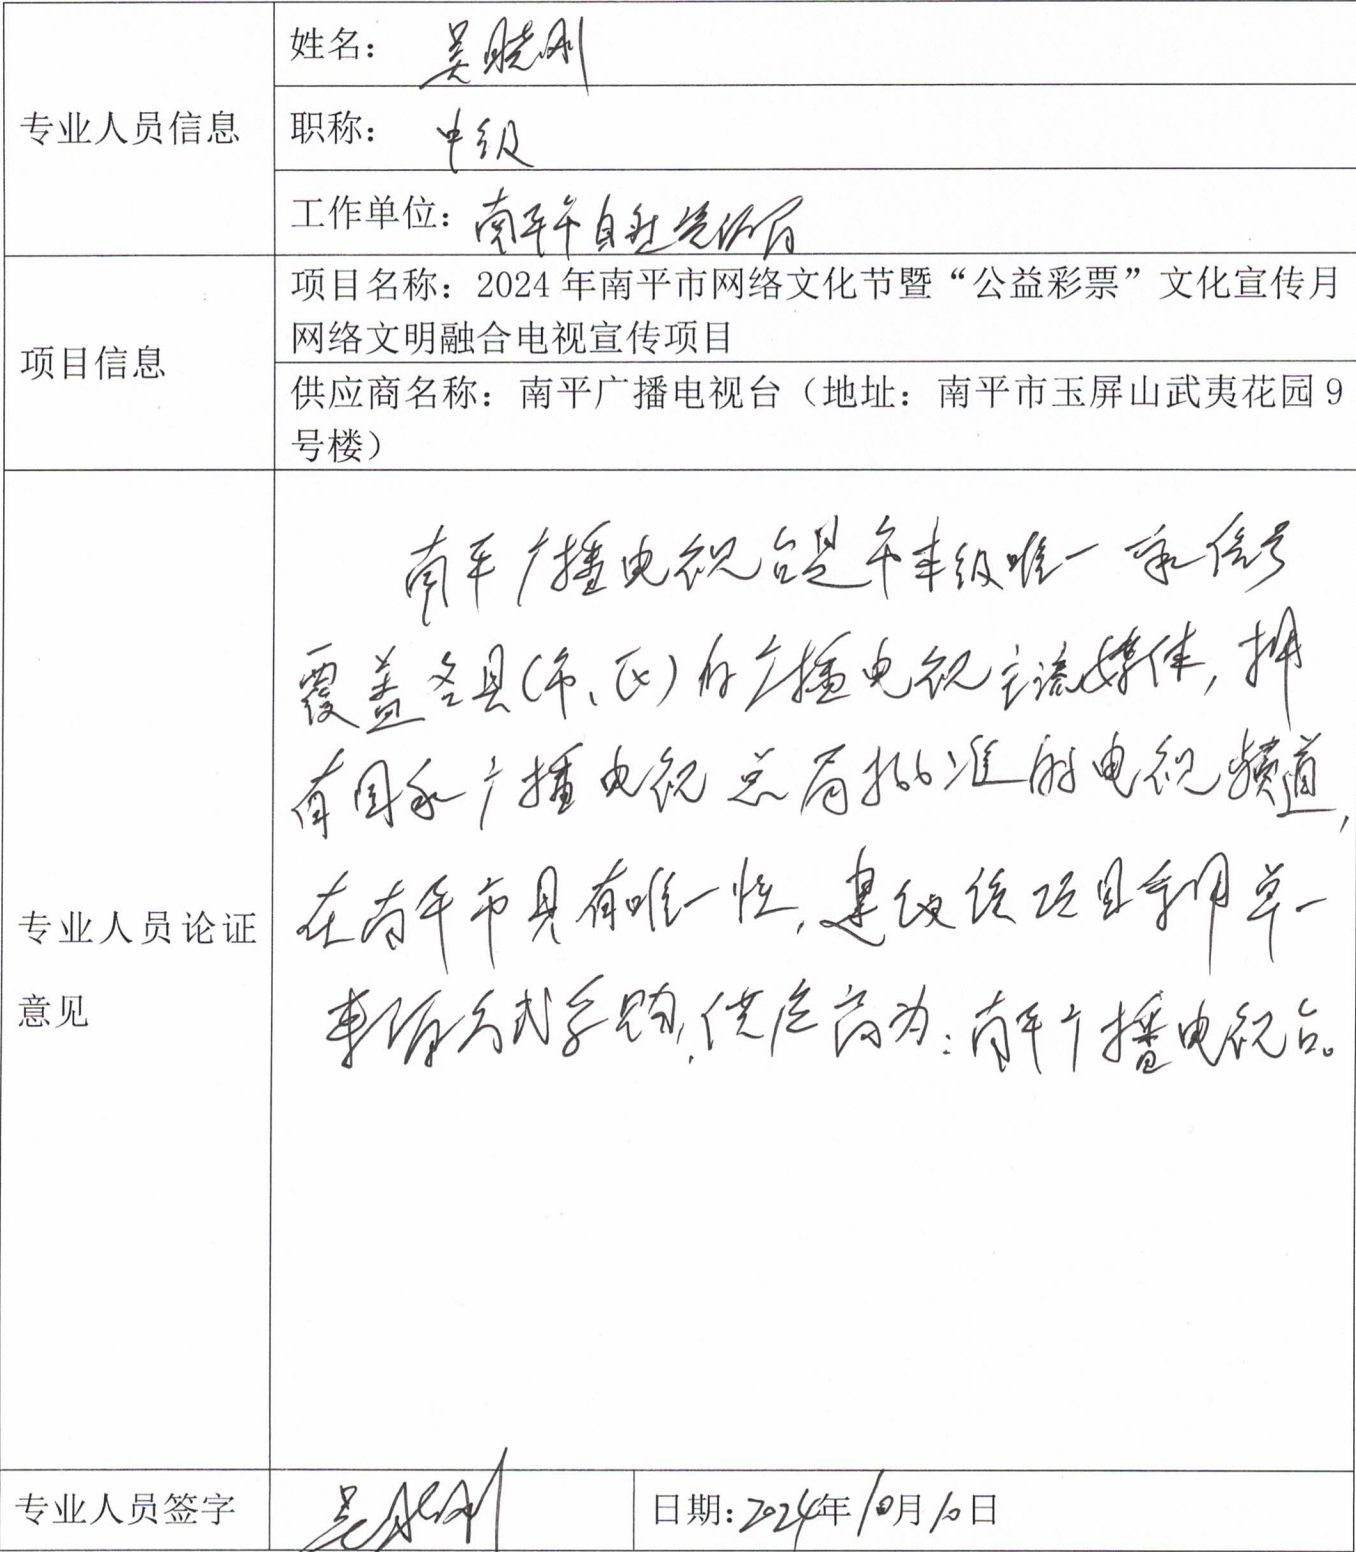 专业人员信息
姓名：吴晓刚
职称：中级
工作单位：南平市自然资源局
项目信息
项目名称：2024年南平市网络文化节暨“公益彩票”文化宣传月
网络文明融合电视宣传项目
供应商名称：南平广播电视台（地址：南平市玉屏山武夷花园9
号楼）
专业人员论证
意见
南平广播电视台是午本级唯一家信号
覆盖各县(市、区)的广播电视主流媒体,拥
有国家广播电视总局批准的电视频道,
在南平市具有唯一性,建议该项目采用单一
来源方式采购,供应商为:南平广播电视台。
专业人员签字
吴晓刚
日期:2024年10月10日